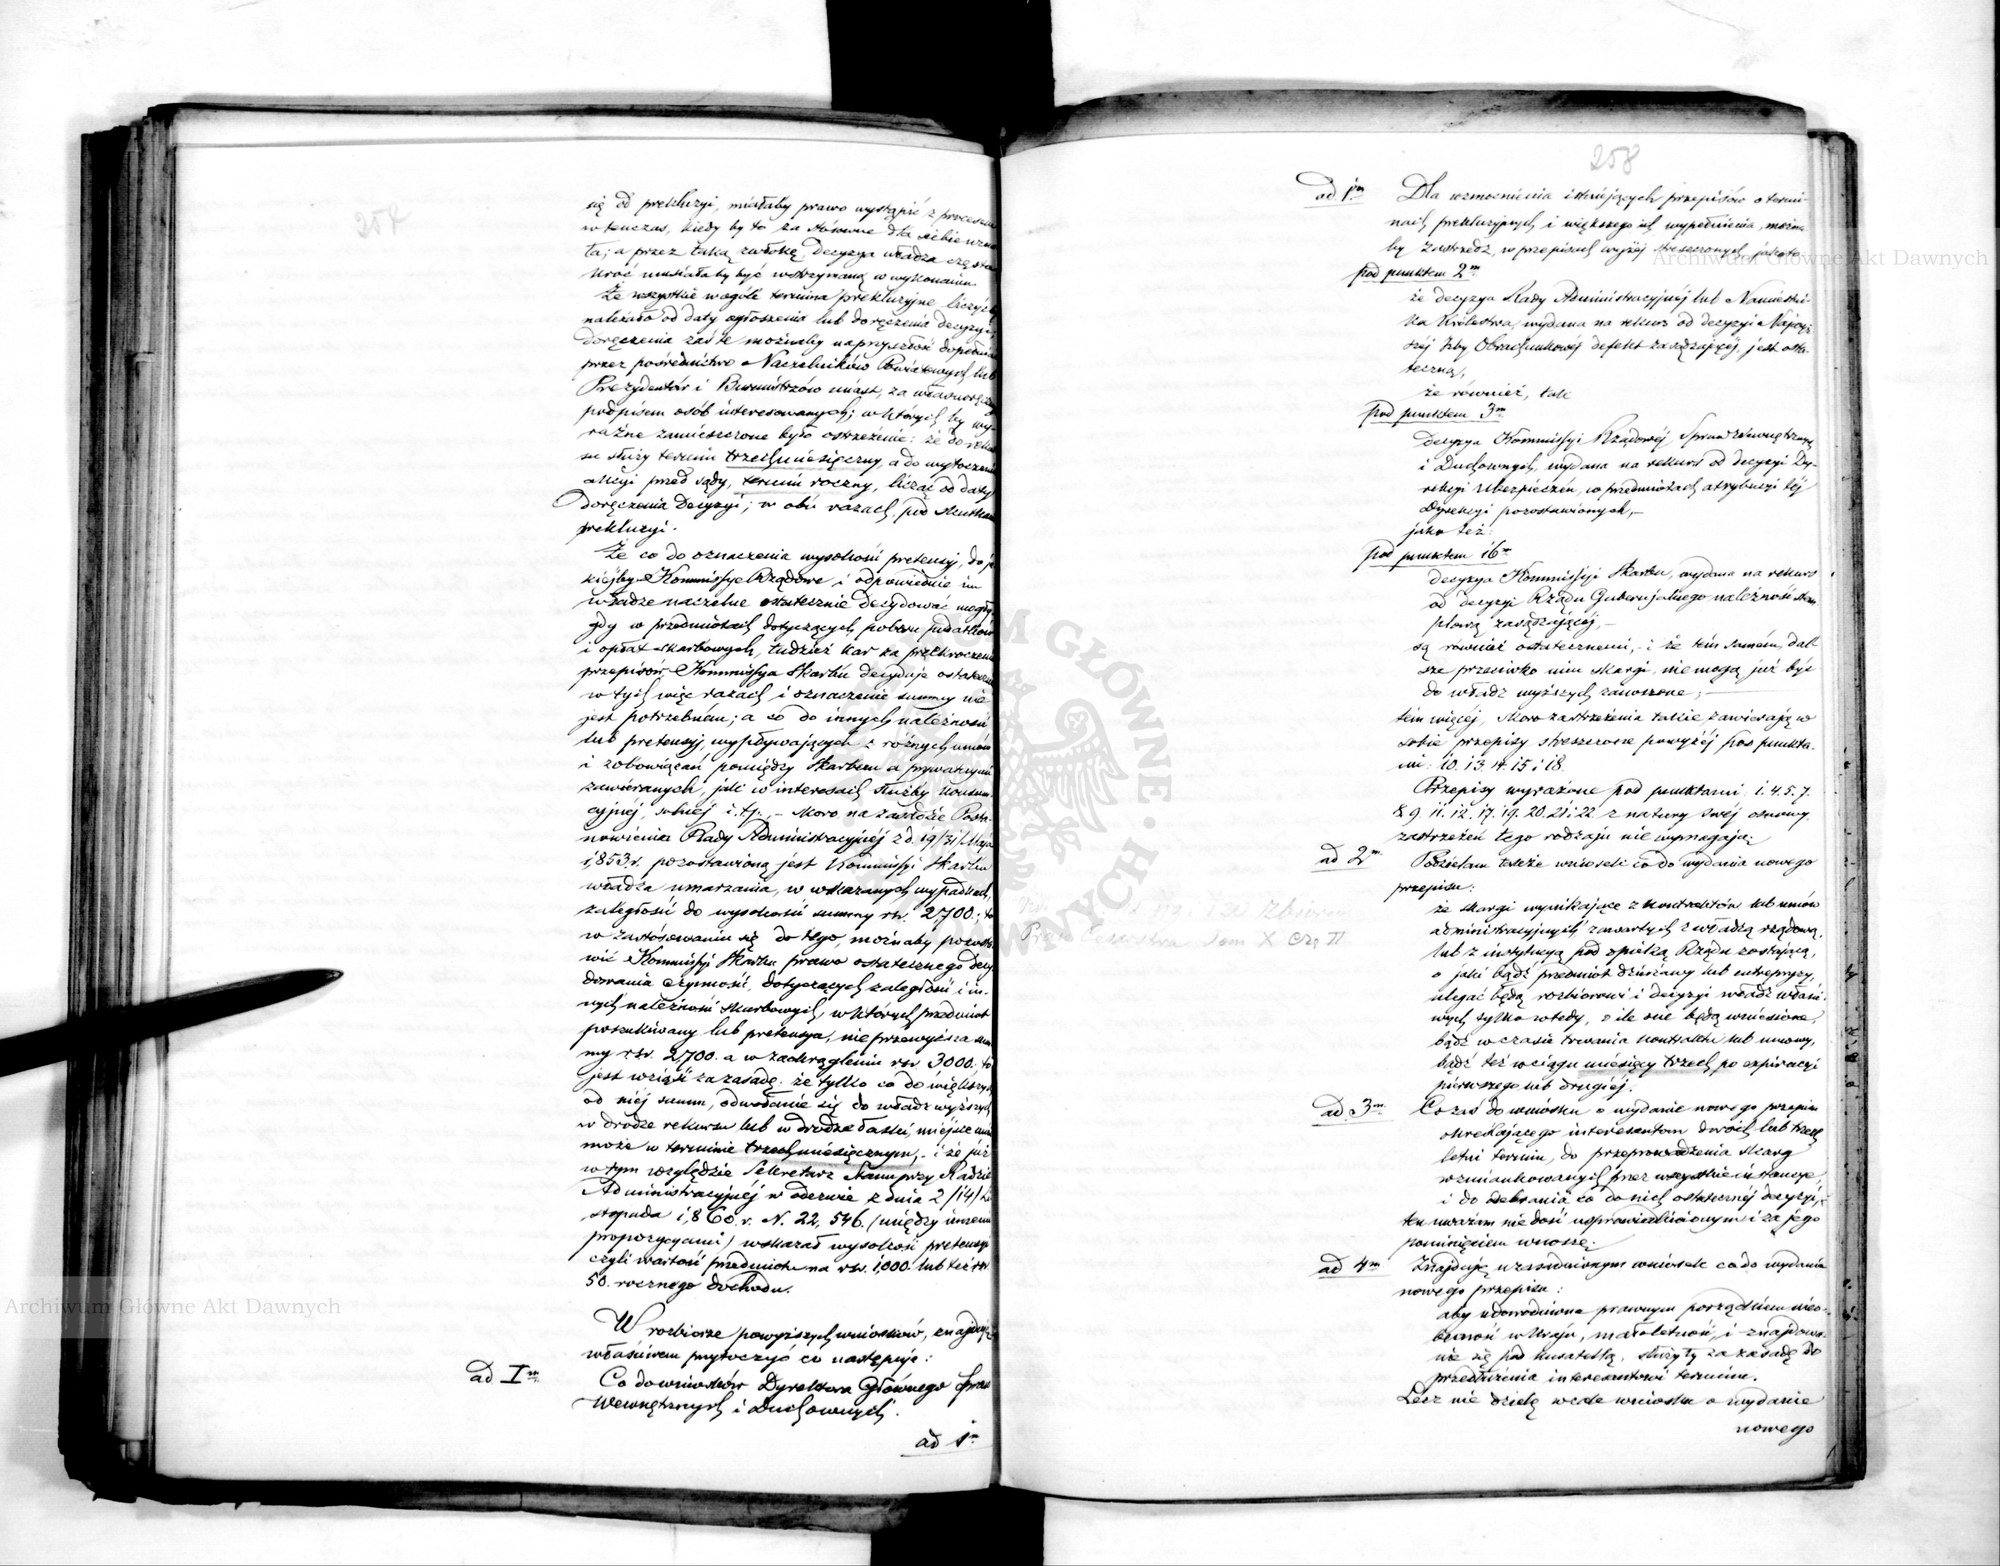 257
się od prekluzyi, miałaby prawo wystąpić z procesem
wtenczas, kiedy by to za stósowne dla siebie uzna-
ła; a przez taką zwłokę, decyzya władza częsta
kroć musiałaby być wstrzymaną w wykonaniu.
Że wszystkie wogóle termina prekluzyjne liczyć by
należało od daty ogłoszenia lub doręczenia decyzyi
Doręczenia zaś te możnaby naprzyszłość dopełniać
przez pośrednictwo Naczelników Powiatowych lub
Prezydentów i Burmistrzów miast, za własnoręcznym
podpisem osób interesowanych; w których by wy-
raźne zamieszczone było ostrzeżenie: że do rekur
su służy termin trzechmiesięczny, a do wytoczenia
akcyi przed sądy, termin roczny, licząc od daty
doręczenia decyzyi; w obu razach, pod skutkiem
prekluzyi.
Że co do oznaczenia wysokości pretensyj, do ja
kiejby Kommissye Rządowe i odpowiednie im
władze naczelne ostatecznie decydować mogły,
gdy w przedmiotach dotyczących poboru podatków
i opłat skarbowych, tudzież kar za przekroczenia
przepisów, Kommissya Skarbu decyduje ostatecznie
w tych więc razach i oznaczenie summy nie
jest potrzebném; a co do innych należności
lub pretensyj, wypływających z różnych umów
i zobowiązań pomiędzy Skarbem a prywatnymi
zawieranych, jak w interesach służby konsum-
cyjnéj, solnéj i.t.p., – skoro na zasadzie Posta-
nowienia Rady Administracyjnéj z d. 19/31 Maja
1,853 r. pozostawioną jest Kommissyi Skarbu
władza umarzania, w wskazanych wypadkach,
zaległości do wysokości summy rsr. 2,700; to
w zastósowaniu się do tego, możnaby pozosta
wić Kommissyi Skarbu prawo ostatecznego decy
dowania czynności, dotyczących zaległości i in-
nych należności skarbowych, w których przedmiot
poszukiwany lub pretensya, nie przewyższa sum
my rsr. 2,700. a w zaokrągleniu rsr. 3000. to
jest wziąść za zasadę, że tylko co do większych
od niéj summ, odwołanie się do władz wyższych
w drodze rekursu lub w drodze łaski, miejsce mieć
może w terminie trzechmiesięcznym, – i że już
w tym względzie Sekretarz Stanu przy Radzie
Administracyjnéj w odezwie z dnia 2/14/ Li
stopada 1,860. r. N. 22,546. (między innemi
propozycyami) wskazał wysokość pretensyi
czyli wartość przedmiotu na rsr. 1,000. lub też rsr.
50. rocznego dochodu.
W rozbiorze powyższych wniosków, znajduję
właściwem przytoczyć co następuje:
ad I<sup>m</sup> Co do wniosków Dyrektora Głównego Spraw
Wewnętrznych i Duchownych.
ad 1<sup>m</sup>
258
ad 1<sup>m</sup> Dla wzmocnienia istniejących przepisów o termi-
nach prekluzyjnych i większego ich wypełnienia, można
by zastrzedz, w przepisach wyżéj streszczonych, jakoto
pod punktem 2<sup>m</sup>
że decyzya Rady Administracyjnéj lub Namiestni
ka Królestwa, wydana na rekurs od decyzyi Najwyż
széj Izby Obrachunkowéj defekt zasądzającéj, jest osta-
teczną,
że również, tak
pod punktem 3<sup>m</sup>
decyzya Kommissyi Rządowéj Spraw Wewnętrznych
i Duchownych, wydana na rekurs od decyzyi Dy-
rekcyi Ubezpieczeń, w przedmiotach atrybucyi téj
Dyrekcyi pozostawionych, –
jako też:
pod punktem 16<sup>m</sup>
decyzya Kommissyi Skarbu, wydana na rekurs
od decyzyi Rządu Gubernjalnego należność stem
plową zasądzającéj, –
są również ostatecznemi, – i że tém samém, dal
sze przeciwko nim skargi, nie mogą już być
do władz wyższych zanoszone;
tém więcéj, skoro zastrzeżenia takie zawierają w
sobie przepisy streszczone powyżéj pod punkta-
mi: 10. 13. 14. 15 i 18.
Przepisy wyrażone pod punktami 1. 4. 5. 7.
8. 9. 11. 12. 17. 19. 20. 21 i 22. z natury swéj osnowy,
zastrzeżeń tego rodzaju nie wymagają;
ad 2<sup>m</sup> Podzielam także wniosek co do wydania nowego
przepisu:
że skargi wynikające z kontraktów lub umów
administracyjnych zawartych z władzą rządową,
lub z instytucyą pod opieką Rządu zostającą,
o jaki bądź przedmiot dzierżawy lub entrepryzy,
ulegać będą rozbiorowi i decyzyi władz właści-
wych tylko wtedy, o ile one będą wniesione,
bądź w czasie trwania kontraktu lub umowy,
bądź też w ciągu miesięcy trzech po expiracyi
pierwszego lub drugiéj.
ad 3<sup>m</sup> Co zaś do wniosku o wydanie nowego przepisu
określającego interesantom dwóch lub trzech
letni termin, do przeprowadzenia skarg
wzmiankowanych przez wszystkie instancye,
i do odebrania co do nich ostatecznéj decyzyi,
ten uważam nie dość usprawiedliwionym i za jego
pominięciem wnoszę;
ad 4<sup>m</sup> Znajduję uzasadnionym wniosek co do wydania
nowego przepisu:
aby udowodniona prawnym porządkiem nieo-
becność w kraju, małoletność, i znajdowa-
nie się pod kuratelą, służyły za zasadę do
przedłużenia interesantowi terminu.
Lecz nie dzielę wcale wniosku o wydanie
nowego
Zbioru
Praw Cesarstwa Tom X Czę II
Archiwum Główne Akt Dawnych
Archiwum Główne Akt Dawnych